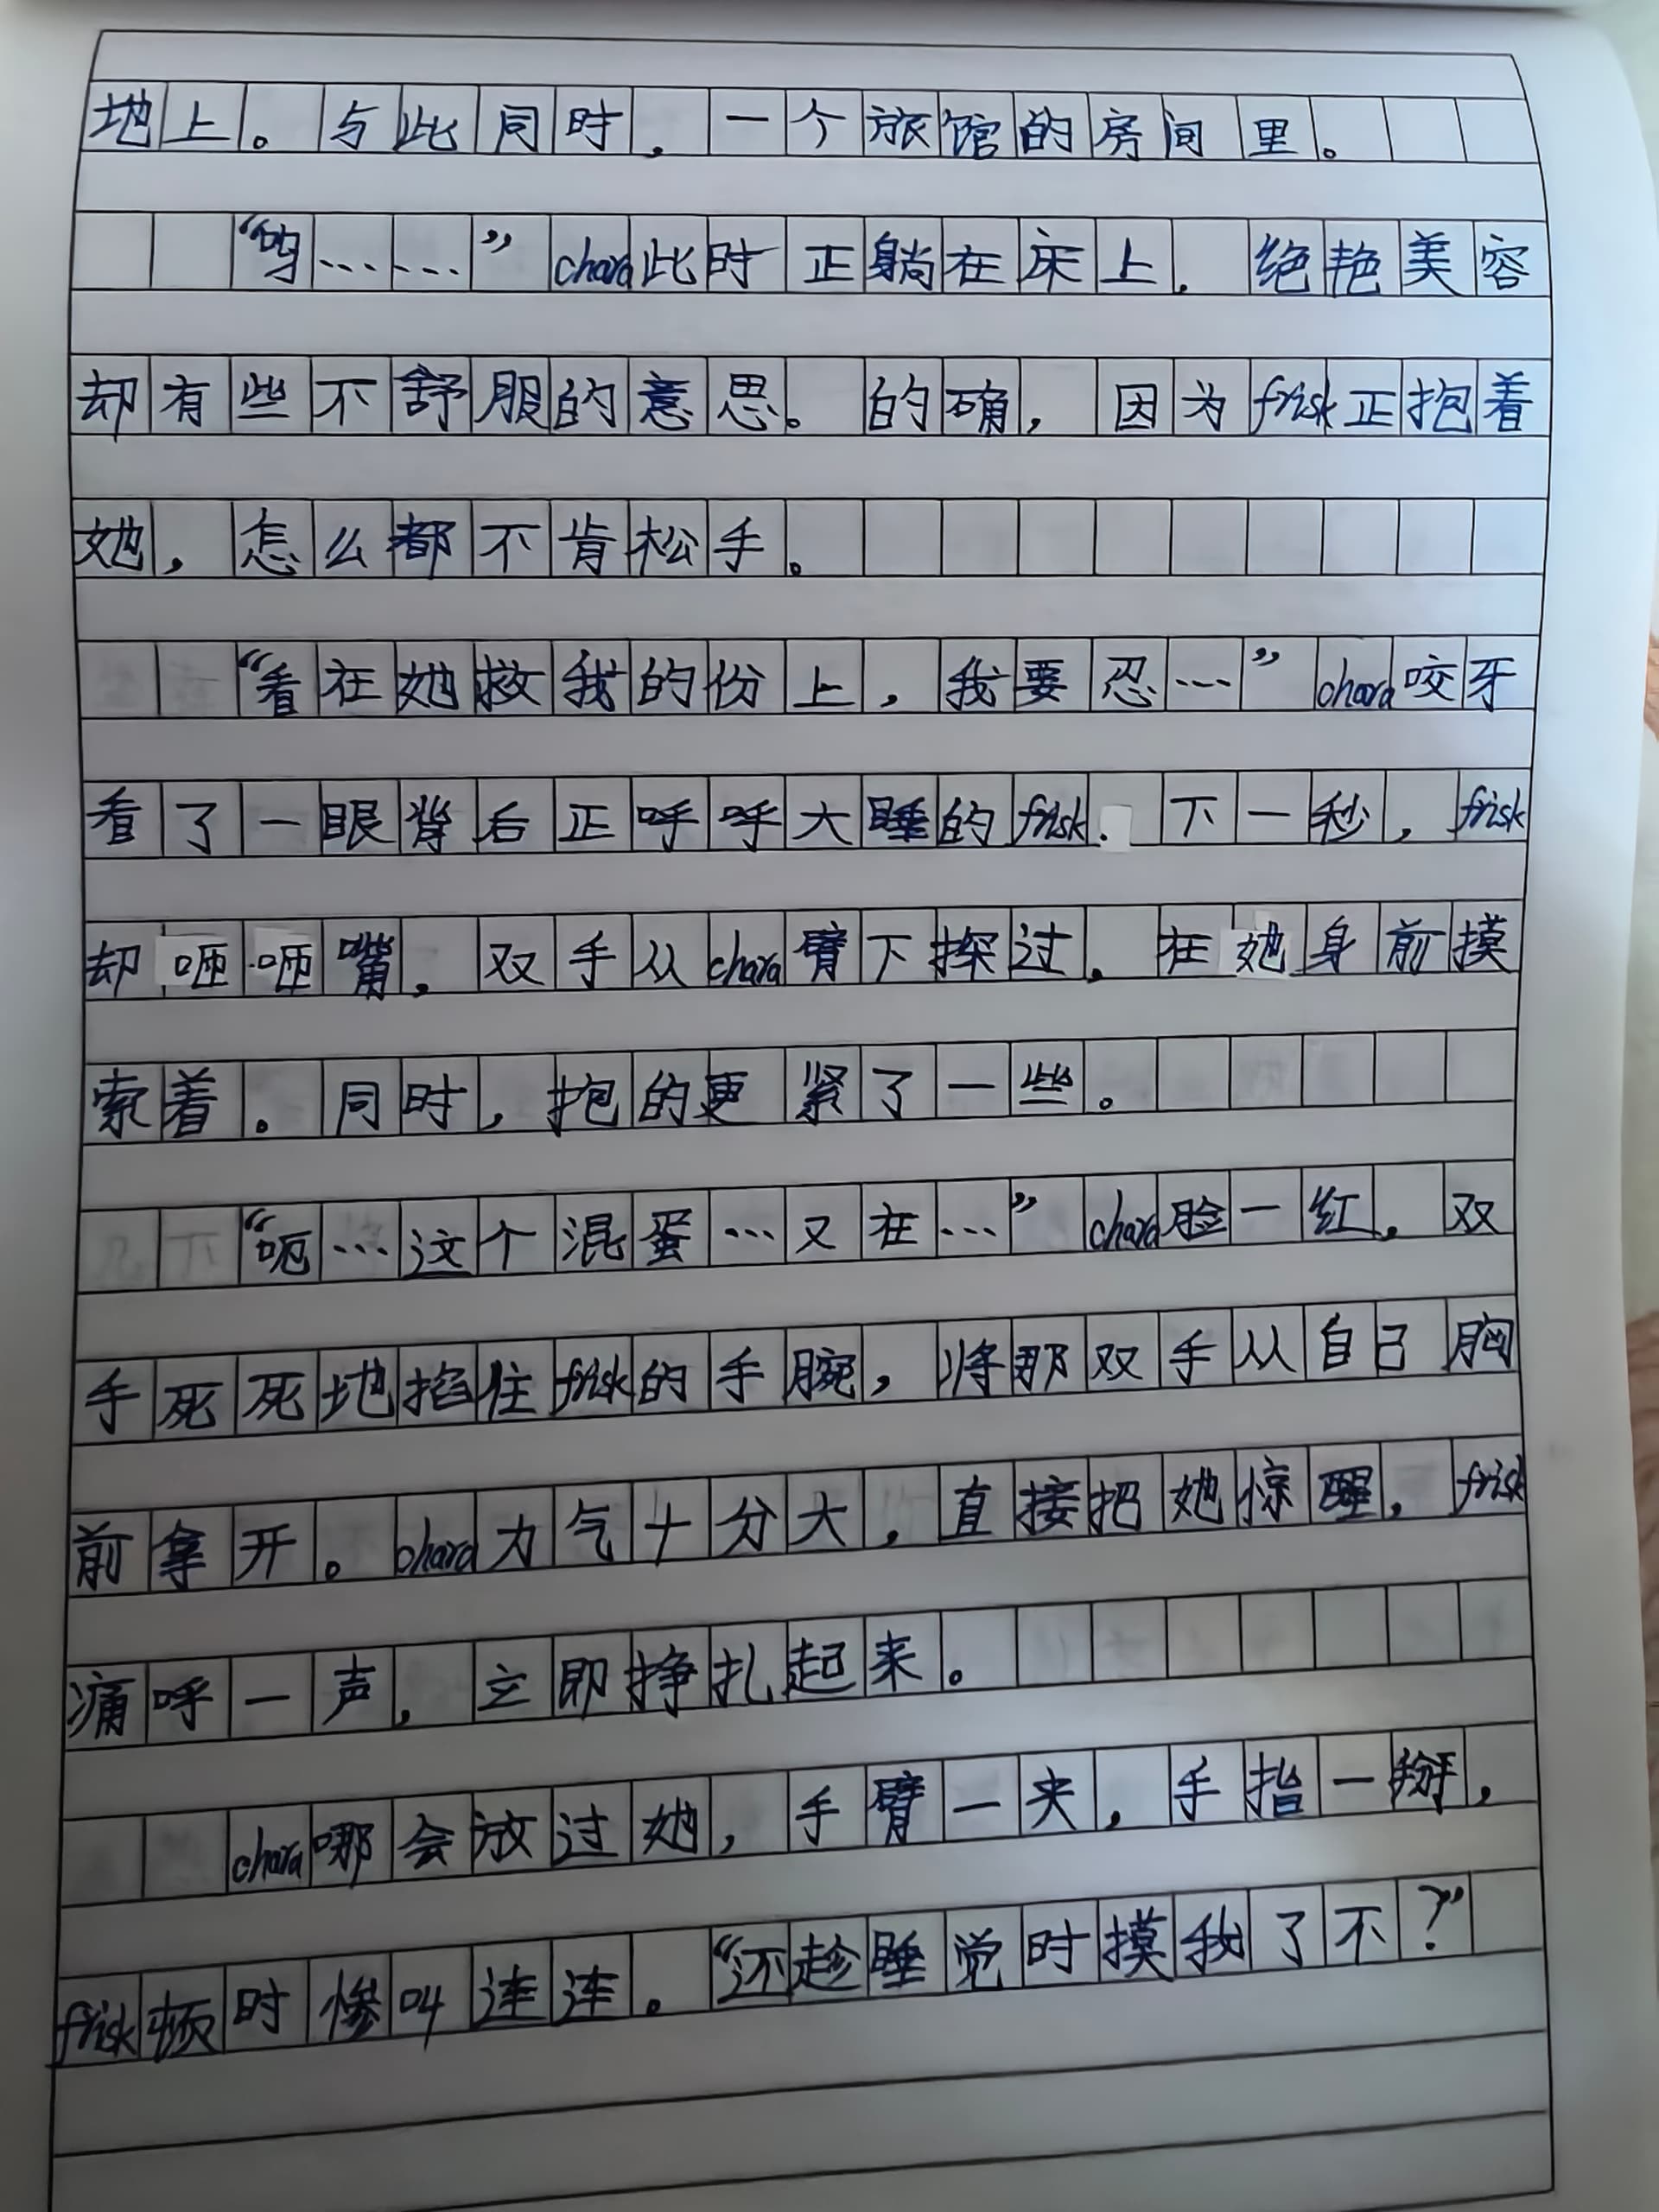 地上。与此同时，一个旅馆的房间里。
“呜……”chara此时正躺在床上，绝艳美容
却有些不舒服的意思。的确，因为frisk正抱着
她，怎么都不肯松手。
“看在她救我的份上，我要忍…”chara咬牙
看了一眼背后正呼呼大睡的frisk．下一秒，frisk
却咂咂嘴，双手从chara臂下探过，在她身前摸
索着。同时，抱的更紧了一些。
“呃…这个混蛋…又在…”chara脸一红，双
手死死地掐住frisk的手腕，将那双手从自己胸
前拿开。chara力气十分大，直接把她惊醒，frisk
痛呼一声，立即挣扎起来。
chara哪会放过她，手臂一夹，手指一掰，
frisk顿时惨叫连连。“还趁睡觉时摸我了不？”